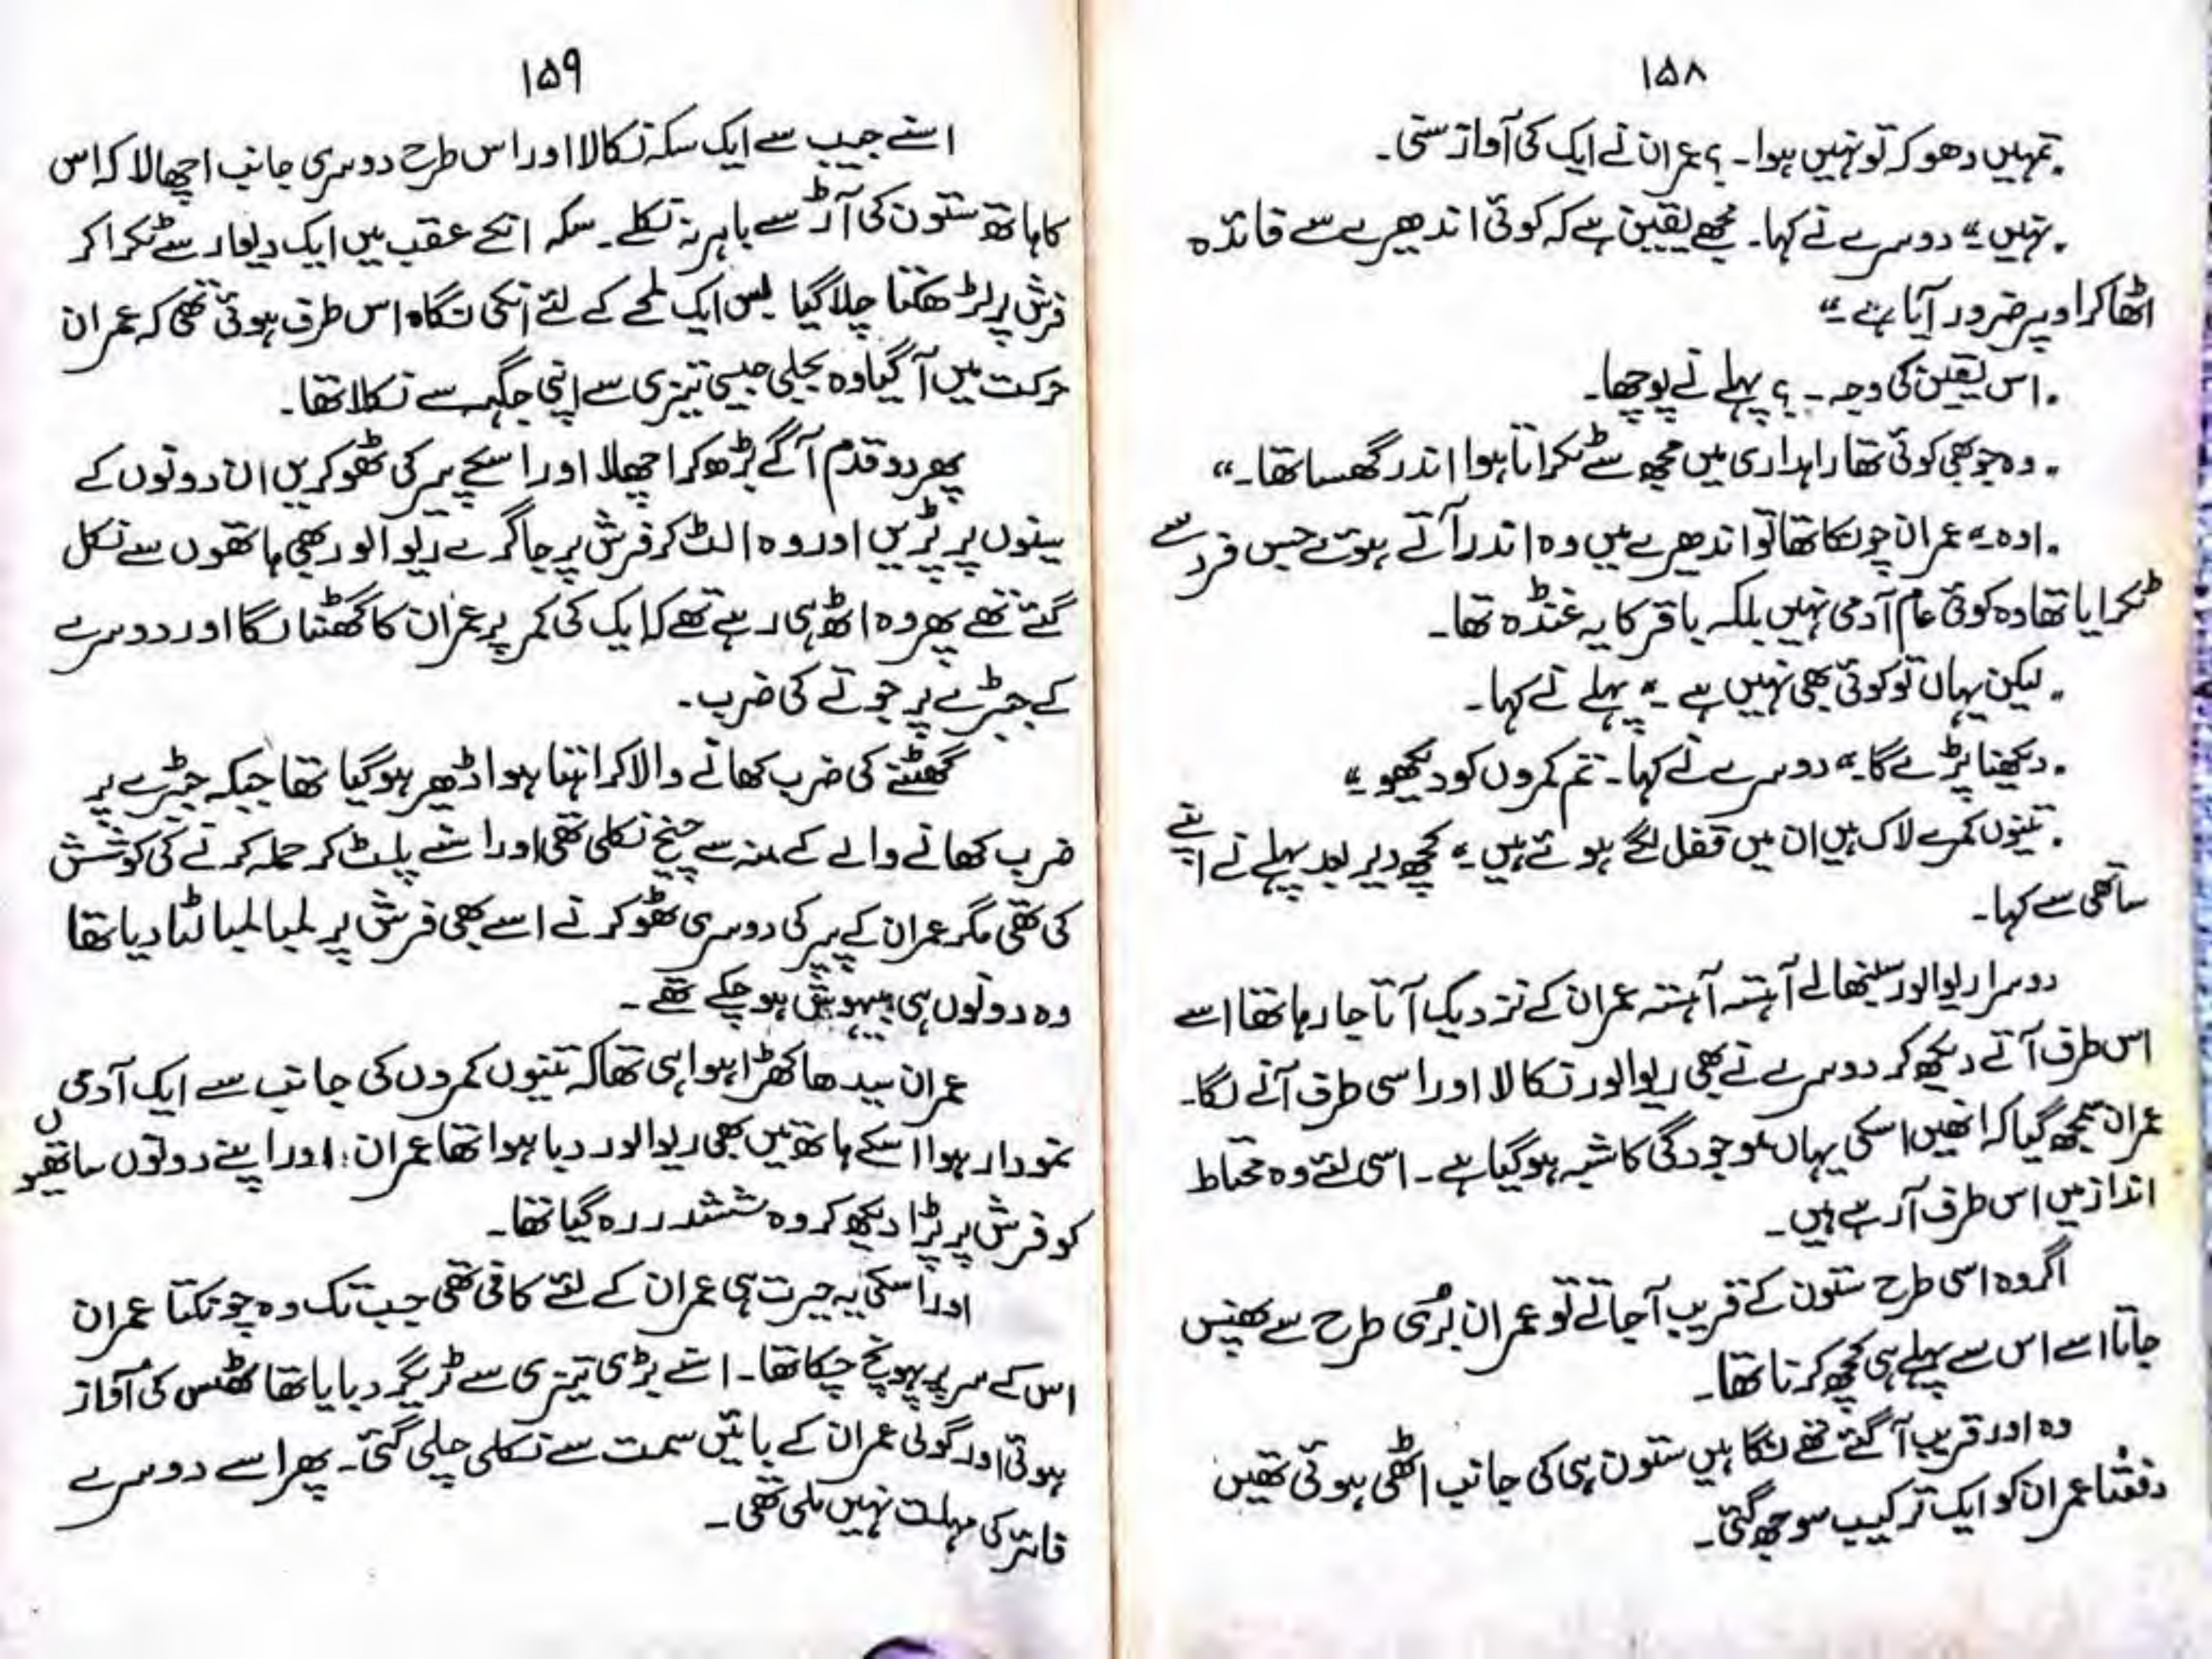 ۱۵۸
"تمہیں دھوکہ تو نہیں ہوا۔؟ عمران نے ایک کی آواز سنی۔
"نہیں۔" دوسرے نے کہا۔ مجھے یقین ہے کہ کوئی اندھیرے سے فائدہ
اٹھا کر اوپر ضرور آیا ہے۔"
"اس یقین کی وجہ۔؟ پہلے نے پوچھا۔
"وہ جو بھی کوئی تھا راہداری میں مجھ سے ٹکراتا ہوا اندر گھسا تھا۔"
"اوہ۔" عمران چونکا تھا تو اندھیرے میں وہ اندر آتے ہوئے جس فرد سے
ٹکرایا تھا وہ کوئی عام آدمی نہیں بلکہ باقر کا یہ غنڈہ تھا۔
"لیکن یہاں تو کوئی بھی نہیں ہے۔" پہلے نے کہا۔
"دیکھنا پڑے گا۔" دوسرے نے کہا۔ تم کمروں کو دیکھو۔"
"تینوں کمرے لاک ہیں ان میں قفل لگے ہوئے ہیں۔" کچھ دیر بعد پہلے نے اپنے
ساتھی سے کہا۔
دوسرا ریوالور سنبھالے آہستہ آہستہ عمران کے نزدیک آتا جا رہا تھا اسے
اس طرف آتے دیکھ کر دوسرے نے بھی ریوالور نکالا اور اسی طرف آنے لگا۔
عمران سمجھ گیا کہ انھیں اسکی یہاں موجودگی کا شبہ ہو گیا ہے۔ اسی لئے وہ محتاط
انداز میں اس طرف آرہے ہیں۔
اگر وہ اسی طرح ستون کے قریب آجاتے تو عمران بُری طرح سے پھنس
جاتا اسے اس سے پہلے ہی کچھ کرنا تھا۔
وہ اور قریب آگئے تھے نگاہیں ستون ہی کی جانب اٹھی ہوئی تھیں
دفعتاً عمران کو ایک ترکیب سوجھ گئی۔
۱۵۹
اسنے جیب سے ایک سکہ نکالا اور اس طرح دوسری جانب اچھالا کہ اس
کا ہاتھ ستون کی آڑ سے باہر نہ نکلے۔ سکہ انکے عقب میں ایک دیوار سے ٹکرا کر
فرش پر لڑھکتا چلا گیا بس ایک لمحے کے لئے انکی نگاہ اس طرف ہوئی تھی کہ عمران
حرکت میں آگیا وہ بجلی جیسی تیزی سے اپنی جگہ سے نکلا تھا۔
پھر دو قدم آگے بڑھ کر اچھلا اور اسکے پیر کی ٹھوکریں ان دونوں کے
سینوں پر پڑیں اور وہ الٹ کر فرش پر جا گرے ریوالور بھی ہاتھوں سے نکل
گئے تھے پھر وہ اٹھ ہی رہے تھے کہ ایک کی کمر پر عمران کا گھٹنا لگا اور دوسرے
کے جبڑے پر جوتے کی ضرب۔
گھٹنے کی ضرب کھانے والا کراہتا ہوا ڈھیر ہو گیا تھا جبکہ جبڑے پر
ضرب کھانے والے کے منہ سے چیخ نکلی تھی اور اسنے پلٹ کر حملہ کرنے کی کوشش
کی تھی مگر عمران کے پیر کی دوسری ٹھوکر نے اسے بھی فرش پر لمبا لمبا لٹا دیا تھا
وہ دونوں ہی بیہوش ہو چکے تھے۔
عمران سیدھا کھڑا ہوا ہی تھا کہ تینوں کمروں کی جانب سے ایک آدمی
نمودار ہوا اسکے ہاتھ میں بھی ریوالور دبا ہوا تھا عمران، اور اپنے دونوں ساتھیوں
کو فرش پر پڑا دیکھ کر وہ ششدر رہ گیا تھا۔
اور اسکی یہ حیرت ہی عمران کے لئے کافی تھی جب تک وہ چونکتا عمران
اس کے سر پر پہونچ چکا تھا۔ اسنے بڑی تیزی سے ٹریگر دبایا تھا ٹھس کی آواز
ہوئی اور گولی عمران کے بائیں سمت سے نکلی چلی گئی۔ پھر اسے دوسرے
فائر کی مہلت نہیں ملی تھی۔